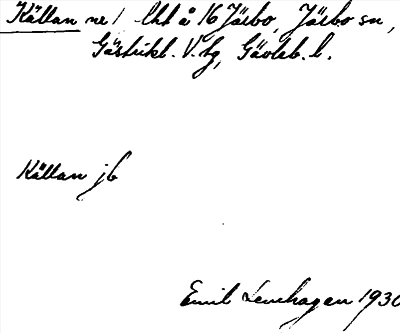 Källan nr 1 lht å 16 Järbo, Järbo sn,
Gästrikl. V. tg, Gävleb. l.
Källan jb
Emil Levhagen 1930